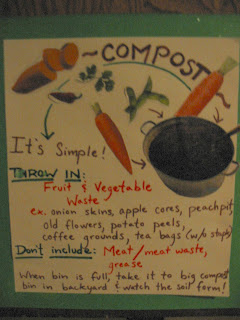 ~COMPOST~
It's Simple!
THROW IN:
Fruit & Vegetable
Waste
ex. onion skins, apple cores, peach pit,
old flowers, potato peels,
coffee grounds, tea bags (w/o staple)
Don't include: Meat/meat waste,
grease
When bin is full, take it to big compost
bin in backyard & watch the soil form!